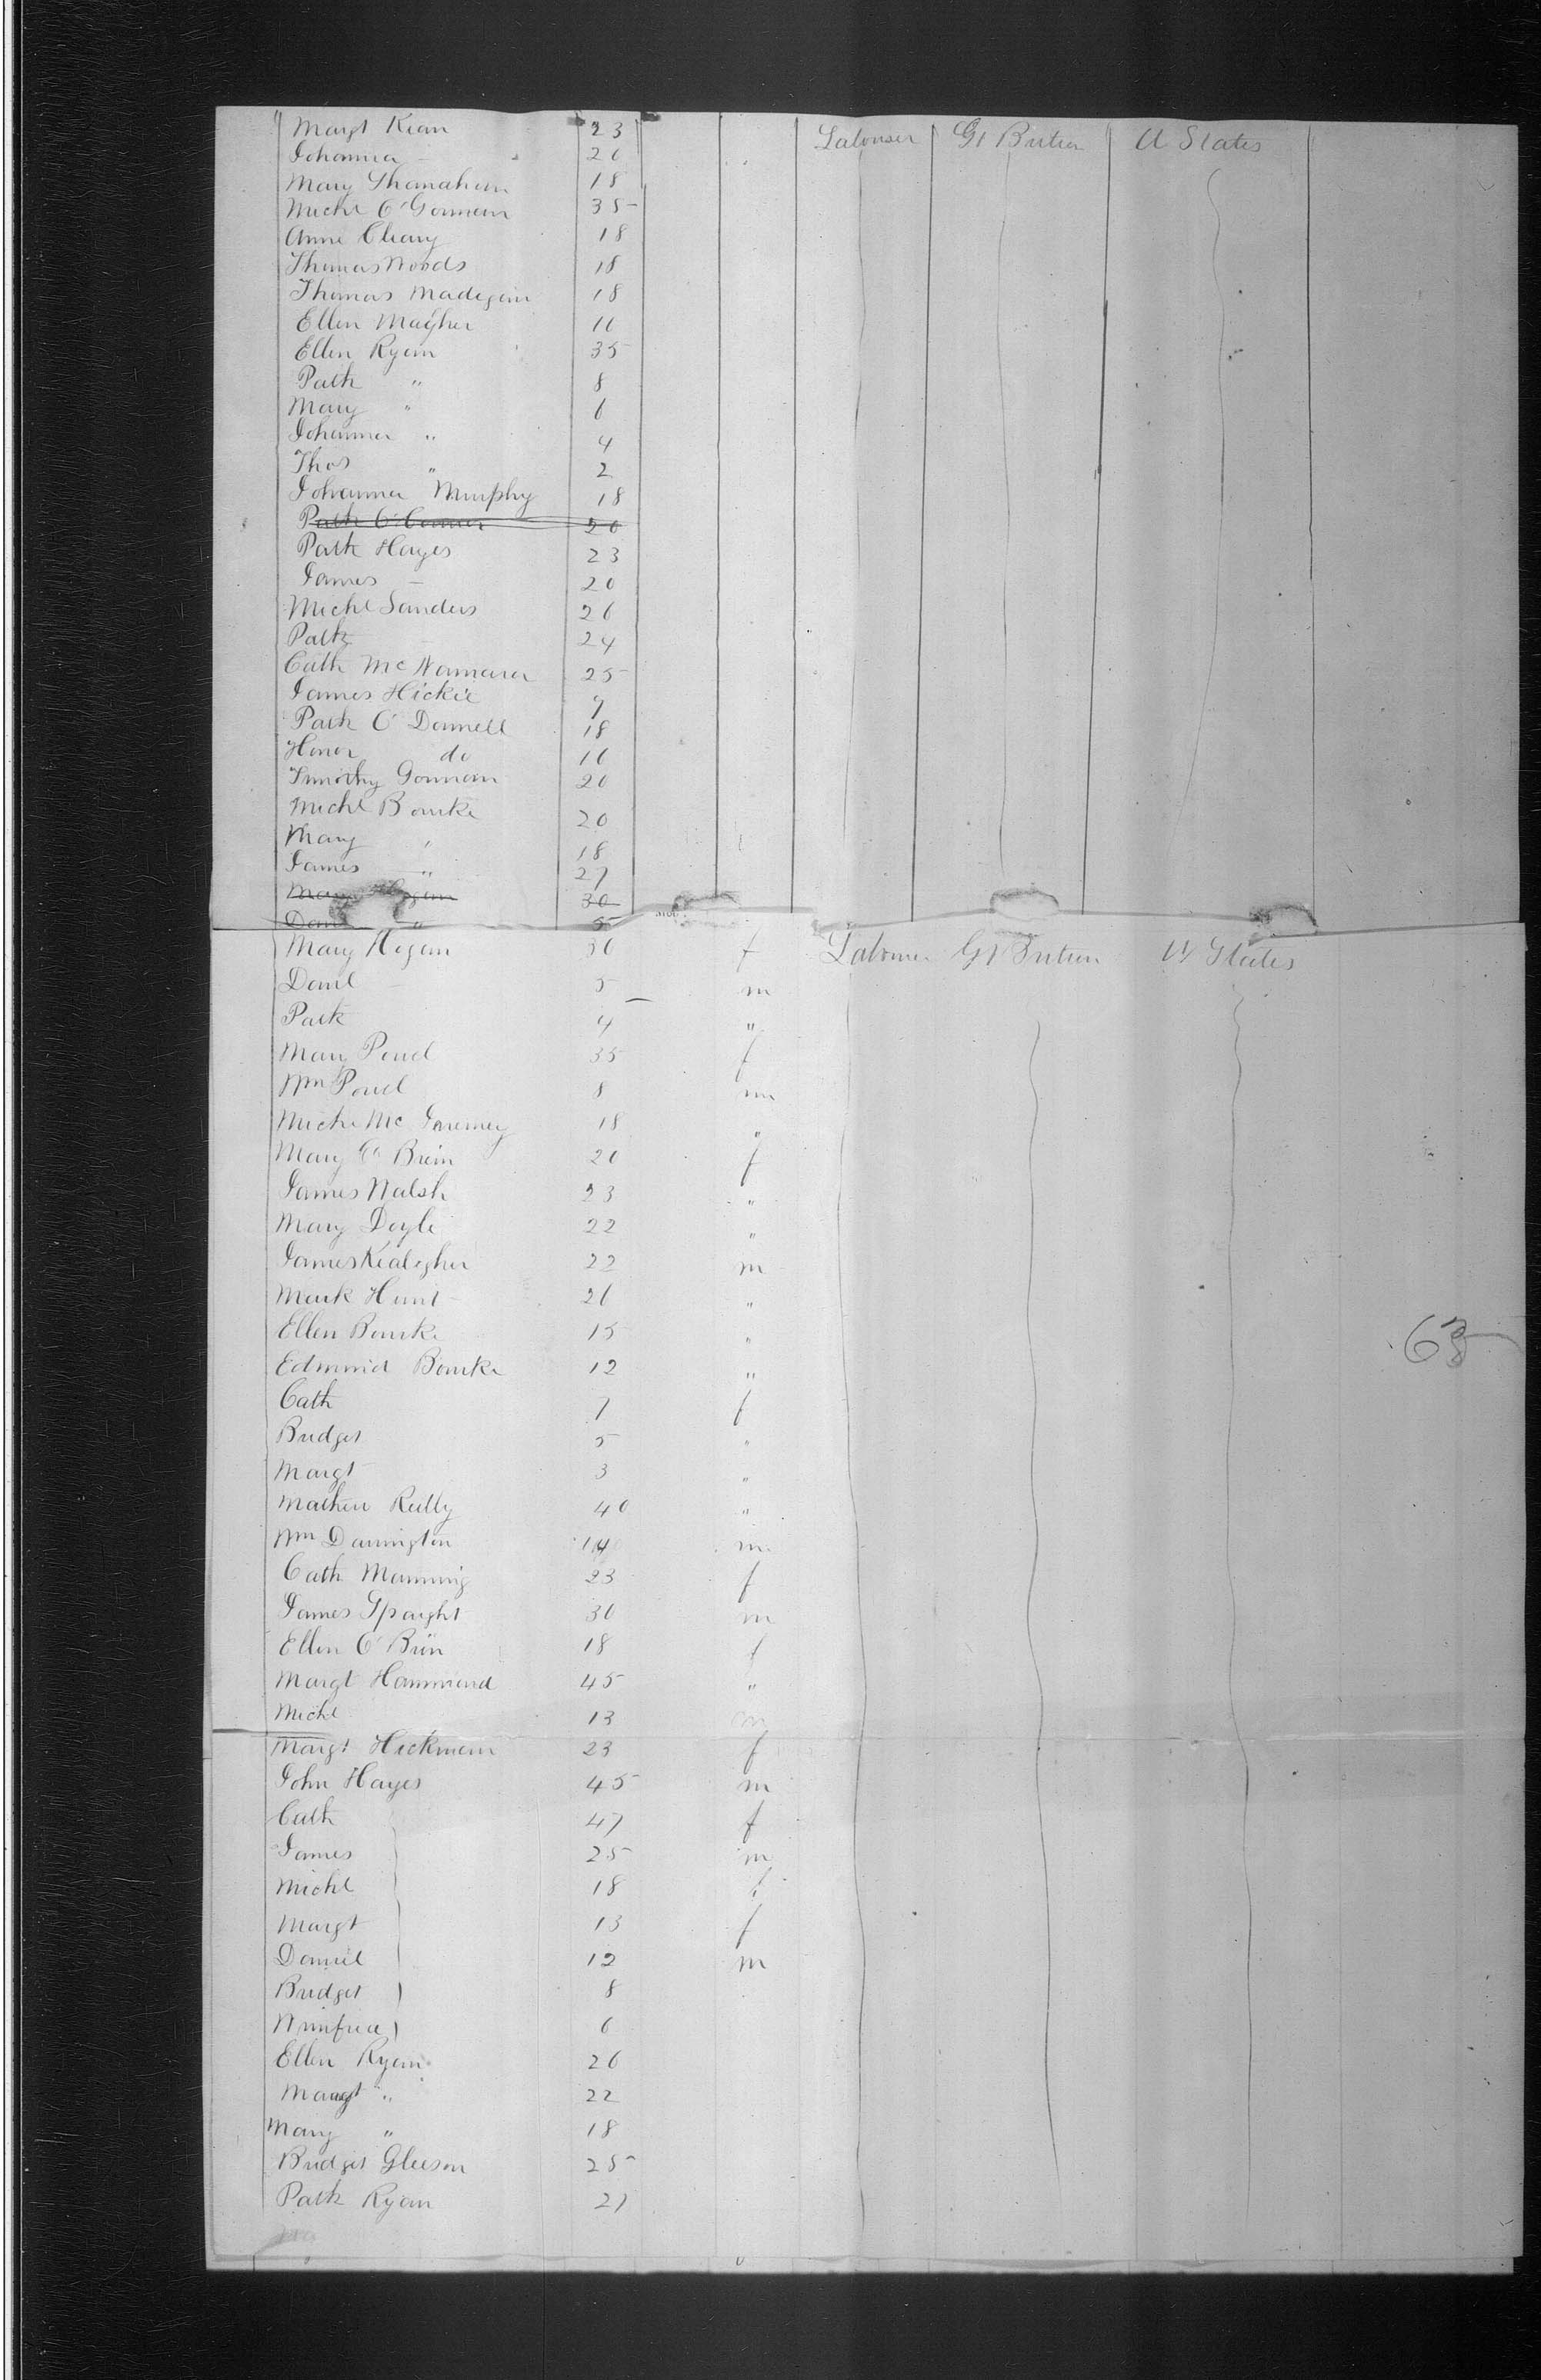 Margt Kean 23 Labourer Gt Britan U States
Johanna — 20
Mary Shanahan 18
Michl O'Gorman 35
Anne Cleary 18
Thomas Woods 18
Thomas Madigan 18
Ellen Magher 16
Ellen Ryan 35
Patk " 8
Mary " 6
Johanna " 4
Thos " 2
Johanna Murphy 18
Patk O'Connor 20
Patk Hayes 23
James — 20
Michl Sanders 26
Patk — 24
Cath McNamara 25
James Hickie 7
Patk O'Donnell 18
Honor do 16
Timothy Gorman 20
Michl Bourke 20
Mary " 18
James " 27
Mary Hogan 30
Danl " 5
Mary Hogan 30 f Labourer Gt Britan U States
Danl — 5 m
Patk 4 "
Mary Poud 35 f
Wm Poud 8 m
Michl McInerney 18 "
Mary O'Brien 20 f
James Walsh 23 "
Mary Doyle 22 "
James Kealegher 22 m
Mark Hunt 26 "
Ellen Bourke 15 "
Edmund Bourke 12 "
Cath 7 f
Bridget 5 "
Margt 3 "
Mathew Reilly 40 "
Wm Darrington 14 m
Cath Manning 23 f
James Spaight 30 m
Ellen O'Brien 18 f
Margt Hammond 45 "
Michl 13 m
Margt Hickman 23 f
John Hayes 45 m
Cath 47 f
James 25 m
Michl 18 "
Margt 13 f
Daniel 12 m
Bridget 8
Winifred 6
Ellen Ryan 26
Margt " 22
Mary " 18
Bridget Gleeson 25
Patk Ryan 21